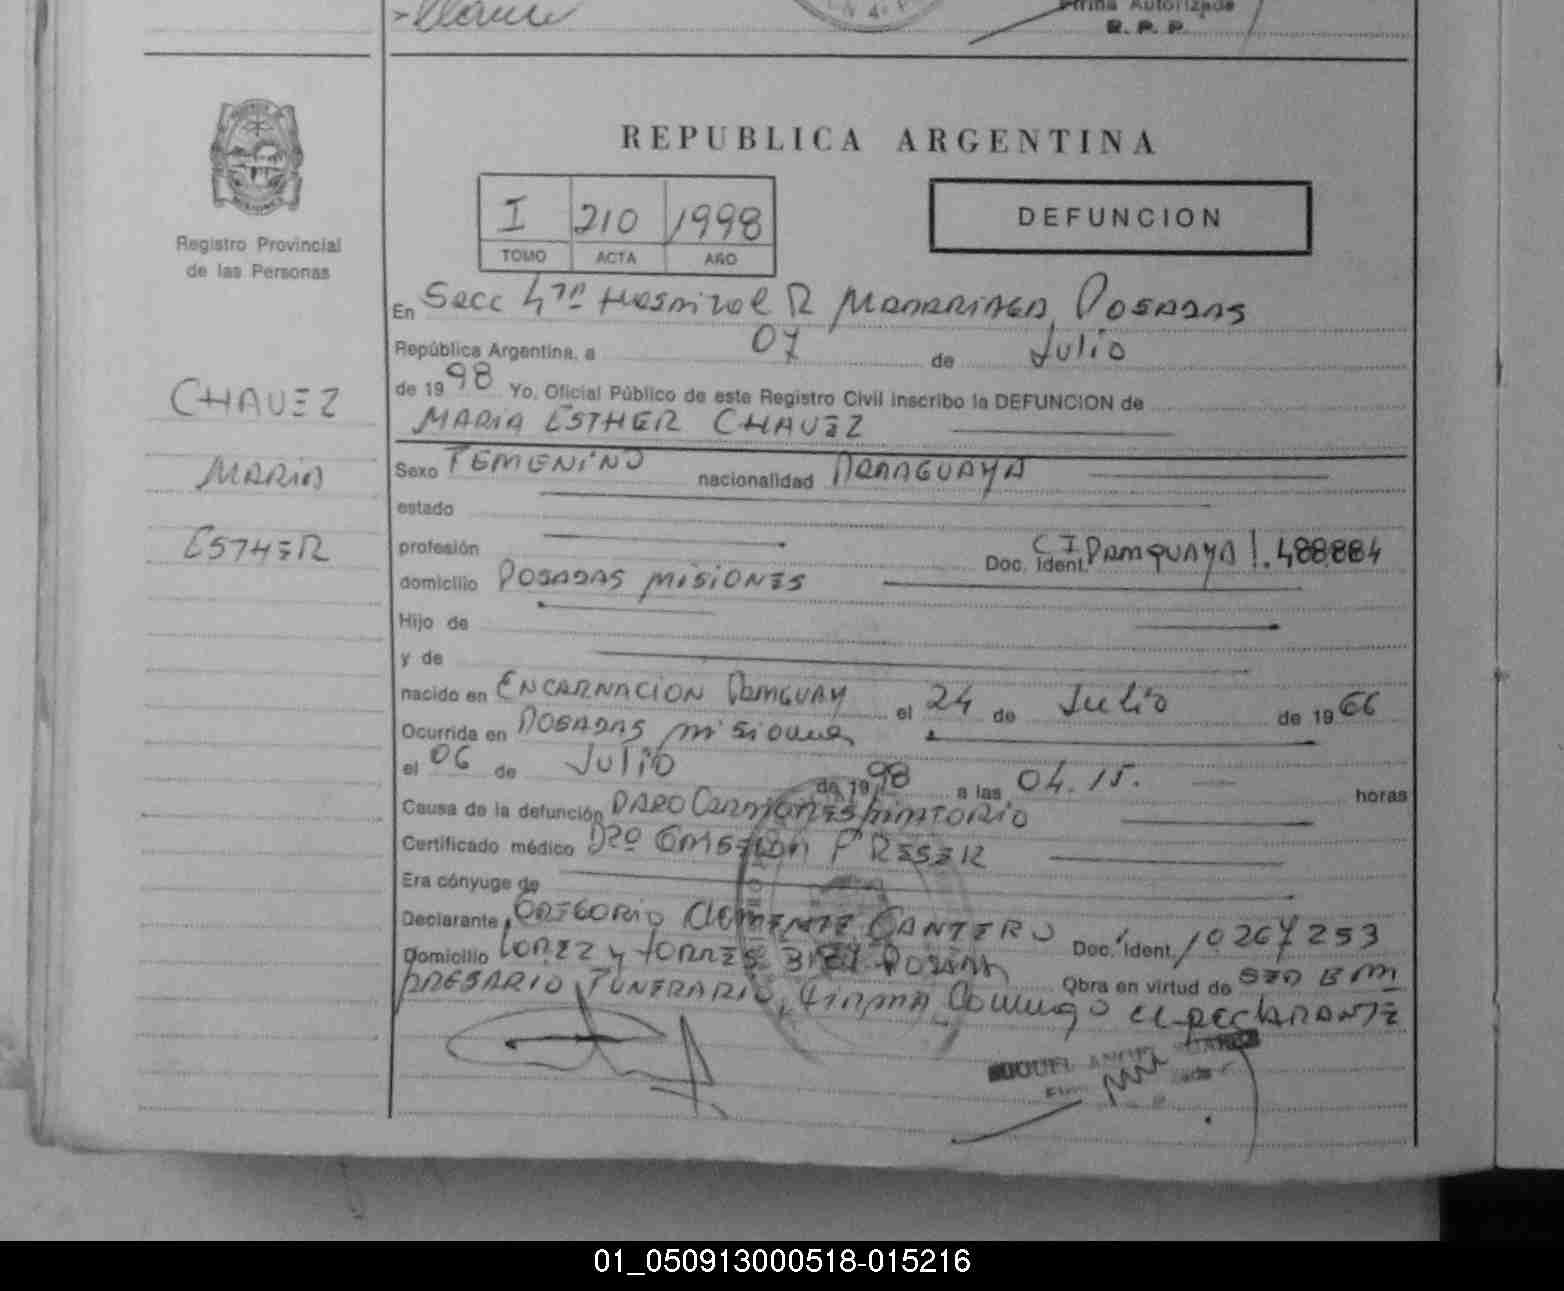 Firma Autorizada
R. P. P.
REPUBLICA ARGENTINA
I 210 1998
TOMO ACTA AÑO
DEFUNCION
Registro Provincial
de las Personas
CHAVEZ
MARIA
ESTHER
En Secc 4ta Hospital R MADARIAGA POSADAS
República Argentina, a 07 de Julio
de 1998 Yo, Oficial Público de este Registro Civil inscribo la DEFUNCION de
MARIA ESTHER CHAVEZ
Sexo FEMENINO nacionalidad PARAGUAYA
estado
profesión Doc. Ident. C I PARAGUAYA 1.488884
domicilio POSADAS MISIONES
Hijo de
y de
nacido en ENCARNACION PARAGUAY el 24 de Julio de 1966
Ocurrida en POSADAS misiones
el 06 de JULIO de 1998 a las 04.15. horas
Causa de la defunción PARO CARDIORESPIRATORIO
Certificado médico DRO
Era cónyuge de
Declarante GREGORIO CLEMENTE CANTERO Doc. Ident. 10267253
Domicilio LOPEZ y TORRES POSADAS Obra en virtud de SER EM
PRESARIO FUNERARIO, FIRMA Conmigo el DECLARANTE
01_050913000518-015216